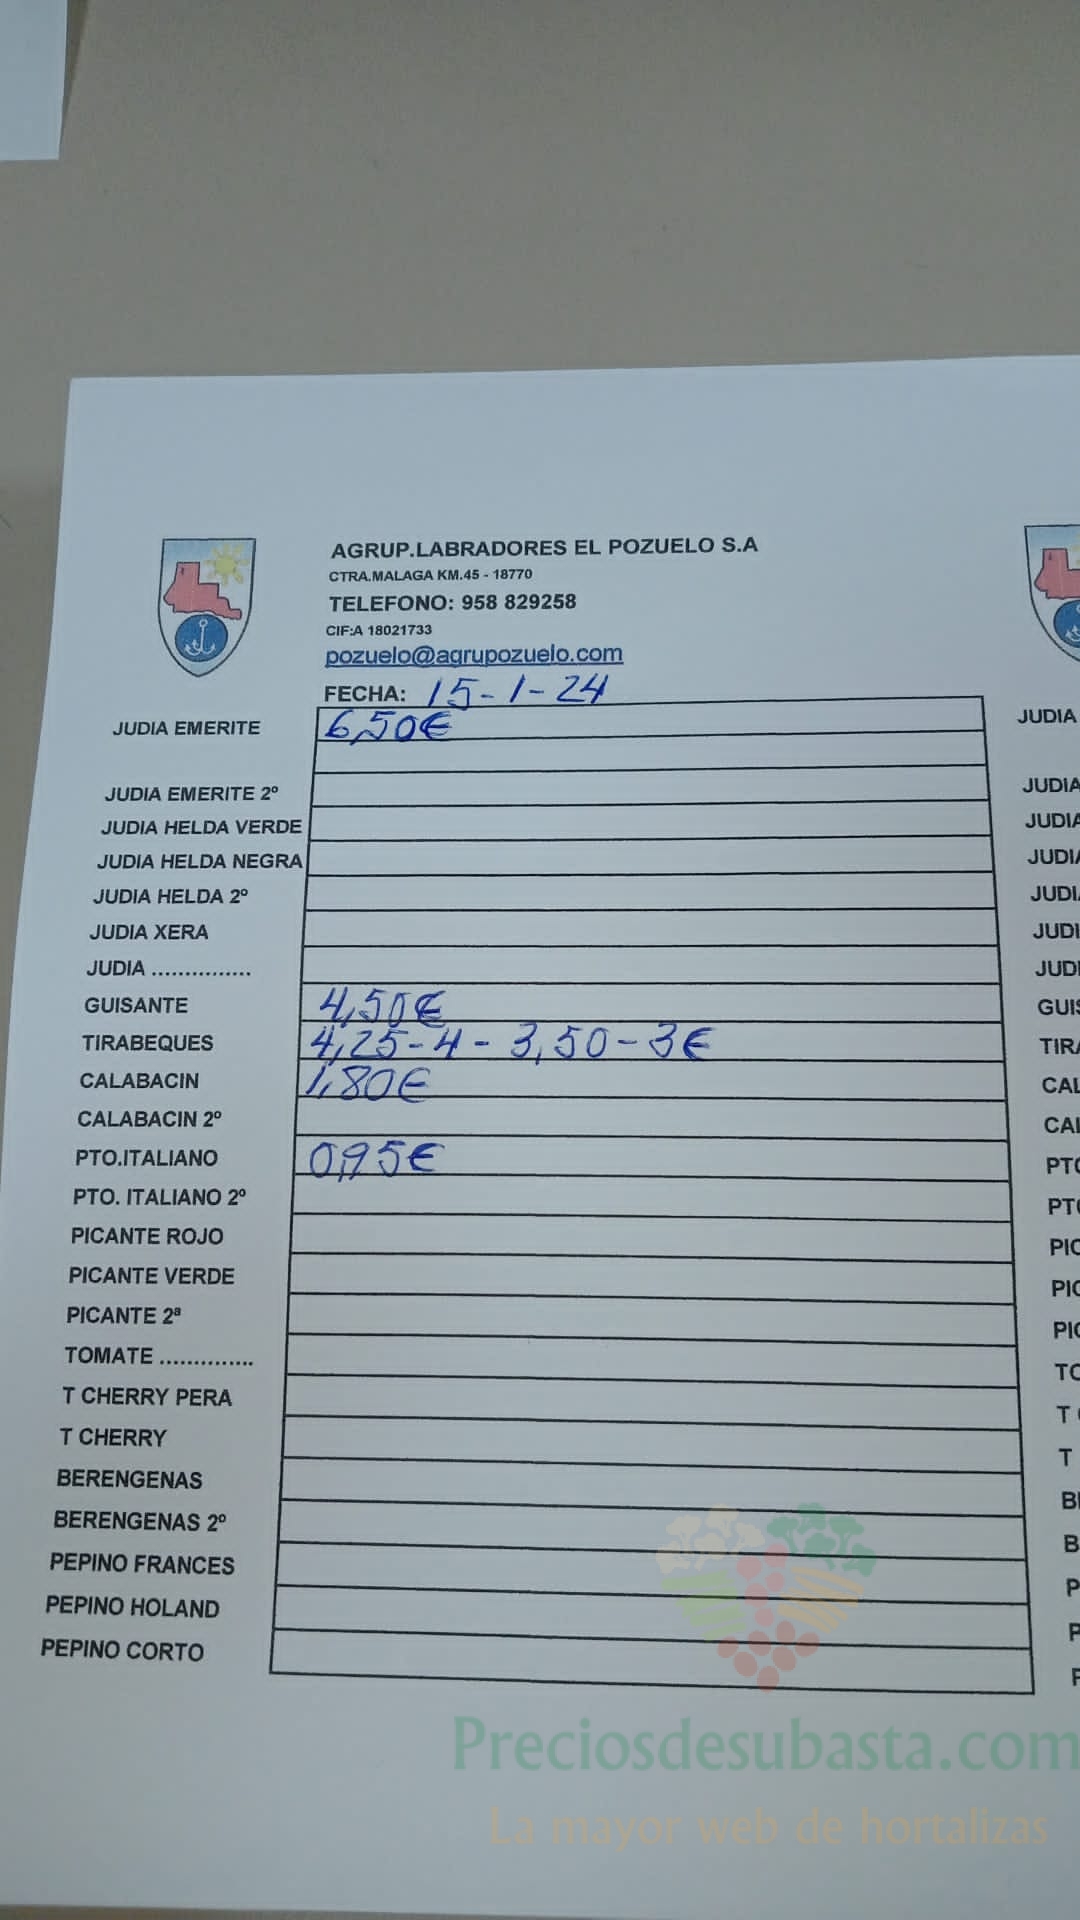 AGRUP.LABRADORES EL POZUELO S.A
CTRA.MALAGA KM.45 - 18770
TELEFONO: 958 829258
CIF:A 18021733
pozuelo@agrupozuelo.com
FECHA: 15-1-24
JUDIA EMERITE 6,50€
JUDIA EMERITE 2º
JUDIA HELDA VERDE
JUDIA HELDA NEGRA
JUDIA HELDA 2º
JUDIA XERA
JUDIA ...............
GUISANTE 4,50€
TIRABEQUES 4,25-4-3,50-3€
CALABACIN 1,80€
CALABACIN 2º
PTO.ITALIANO 0,95€
PTO. ITALIANO 2º
PICANTE ROJO
PICANTE VERDE
PICANTE 2ª
TOMATE ..............
T CHERRY PERA
T CHERRY
BERENGENAS
BERENGENAS 2º
PEPINO FRANCES
PEPINO HOLAND
PEPINO CORTO
JUDIA
JUDIA
JUDIA
JUDIA
JUDI
JUDI
JUDI
GUIS
TIRA
CAL
CAL
PTO
PTO
PIC
PIC
PIC
TO
T
T
B
B
P
P
P
Preciosdesubasta.com
La mayor web de hortalizas